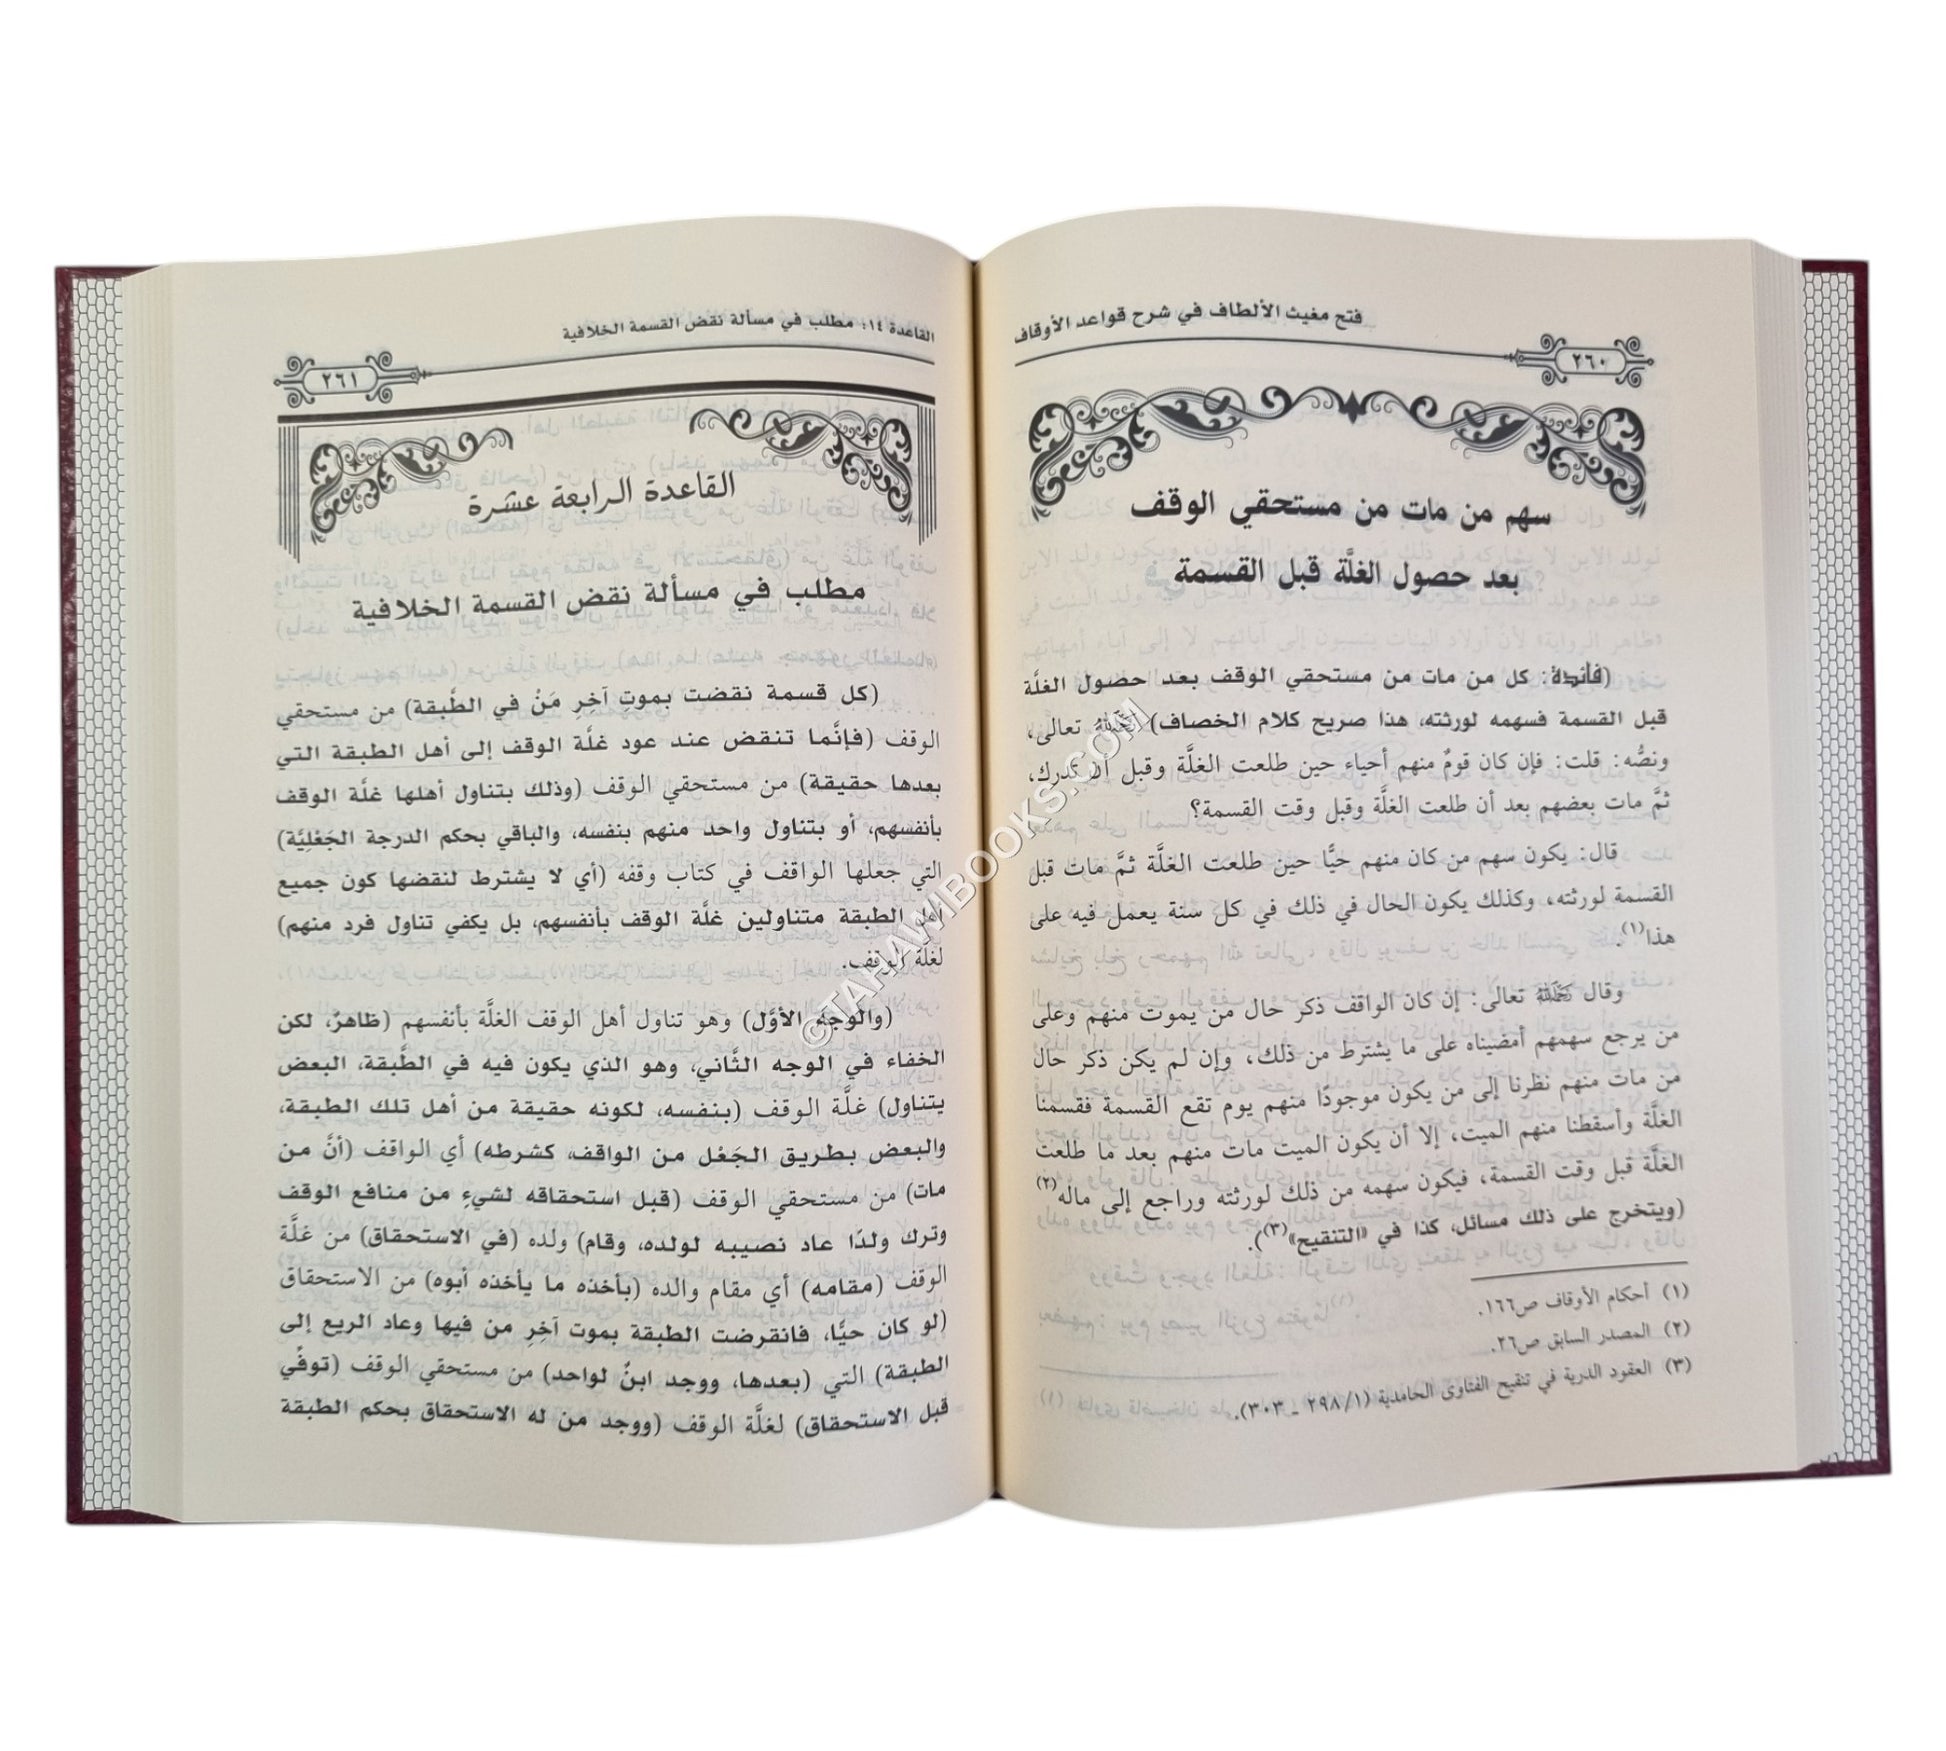 فتح مغيث الألطاف في شرح قواعد الأوقاف
٢٦٠
سهم من مات من مستحقي الوقف
بعد حصول الغلَّة قبل القسمة
(فائدة: كل من مات من مستحقي الوقف بعد حصول الغلَّة
قبل القسمة فسهمه لورثته، هذا صريح كلام الخصاف) رَحِمَهُ اللهُ تعالى،
ونصُّه: قلت: فإن كان قومٌ منهم أحياء حين طلعت الغلَّة وقبل أن تدرك،
ثمَّ مات بعضهم بعد أن طلعت الغلَّة وقبل وقت القسمة؟
قال: يكون سهم من كان منهم حيًّا حين طلعت الغلَّة ثمَّ مات قبل
القسمة لورثته، وكذلك يكون الحال في ذلك في كل سنة يعمل فيه على
هذا(١).
وقال رَحِمَهُ اللهُ تعالى: إن كان الواقف ذكر حال من يموت منهم وعلى
من يرجع سهمهم أمضيناه على ما يشترط من ذلك، وإن لم يكن ذكر حال
من مات منهم نظرنا إلى من يكون موجودًا منهم يوم تقع القسمة فقسمنا
الغلَّة وأسقطنا منهم الميت، إلا أن يكون الميت مات منهم بعد ما طلعت
الغلَّة قبل وقت القسمة، فيكون سهمه من ذلك لورثته وراجع إلى ماله(٢)
(ويتخرج على ذلك مسائل، كذا في «التنقيح»(٣)).
(١) أحكام الأوقاف ص١٦٦.
(٢) المصدر السابق ص٢٦.
(٣) العقود الدرية في تنقيح الفتاوى الحامدية (١/ ٢٩٨ ـ ٣٠٣).
القاعدة ١٤: مطلب في مسألة نقض القسمة الخلافية
٢٦١
القاعدة الرابعة عشرة
مطلب في مسألة نقض القسمة الخلافية
(كل قسمة نقضت بموتِ آخِرِ مَنْ في الطَّبقة) من مستحقي
الوقف (فإنَّما تنقض عند عود غلَّة الوقف إلى أهل الطبقة التي
بعدها حقيقة) من مستحقي الوقف (وذلك بتناول أهلها غلَّة الوقف
بأنفسهم، أو بتناول واحد منهم بنفسه، والباقي بحكم الدرجة الجَعْلِيَّة)
التي جعلها الواقف في كتاب وقفه (أي لا يشترط لنقضها كون جميع
أهل الطبقة متناولين غلَّة الوقف بأنفسهم، بل يكفي تناول فرد منهم)
لغلَّة الوقف.
(والوجه الأوَّل) وهو تناول أهل الوقف الغلَّة بأنفسهم (ظاهرٌ، لكن
الخفاء في الوجه الثَّاني، وهو الذي يكون فيه في الطَّبقة، البعض
يتناول) غلَّة الوقف (بنفسه، لكونه حقيقة من أهل تلك الطبقة،
والبعض بطريق الجَعْل من الواقف، كشرطه) أي الواقف (أنَّ من
مات) من مستحقي الوقف (قبل استحقاقه لشيءٍ من منافع الوقف
وترك ولدًا عاد نصيبه لولده، وقام) ولده (في الاستحقاق) من غلَّة
الوقف (مقامه) أي مقام والده (بأخذه ما يأخذه أبوه) من الاستحقاق
(لو كان حيًّا، فانقرضت الطبقة بموت آخِرِ من فيها وعاد الريع إلى
الطبقة) التي (بعدها، ووجد ابنٌ لواحد) من مستحقي الوقف (توفِّي
قبل الاستحقاق) لغلَّة الوقف (ووجد من له الاستحقاق بحكم الطبقة
©TARAWIBOOKS.COM